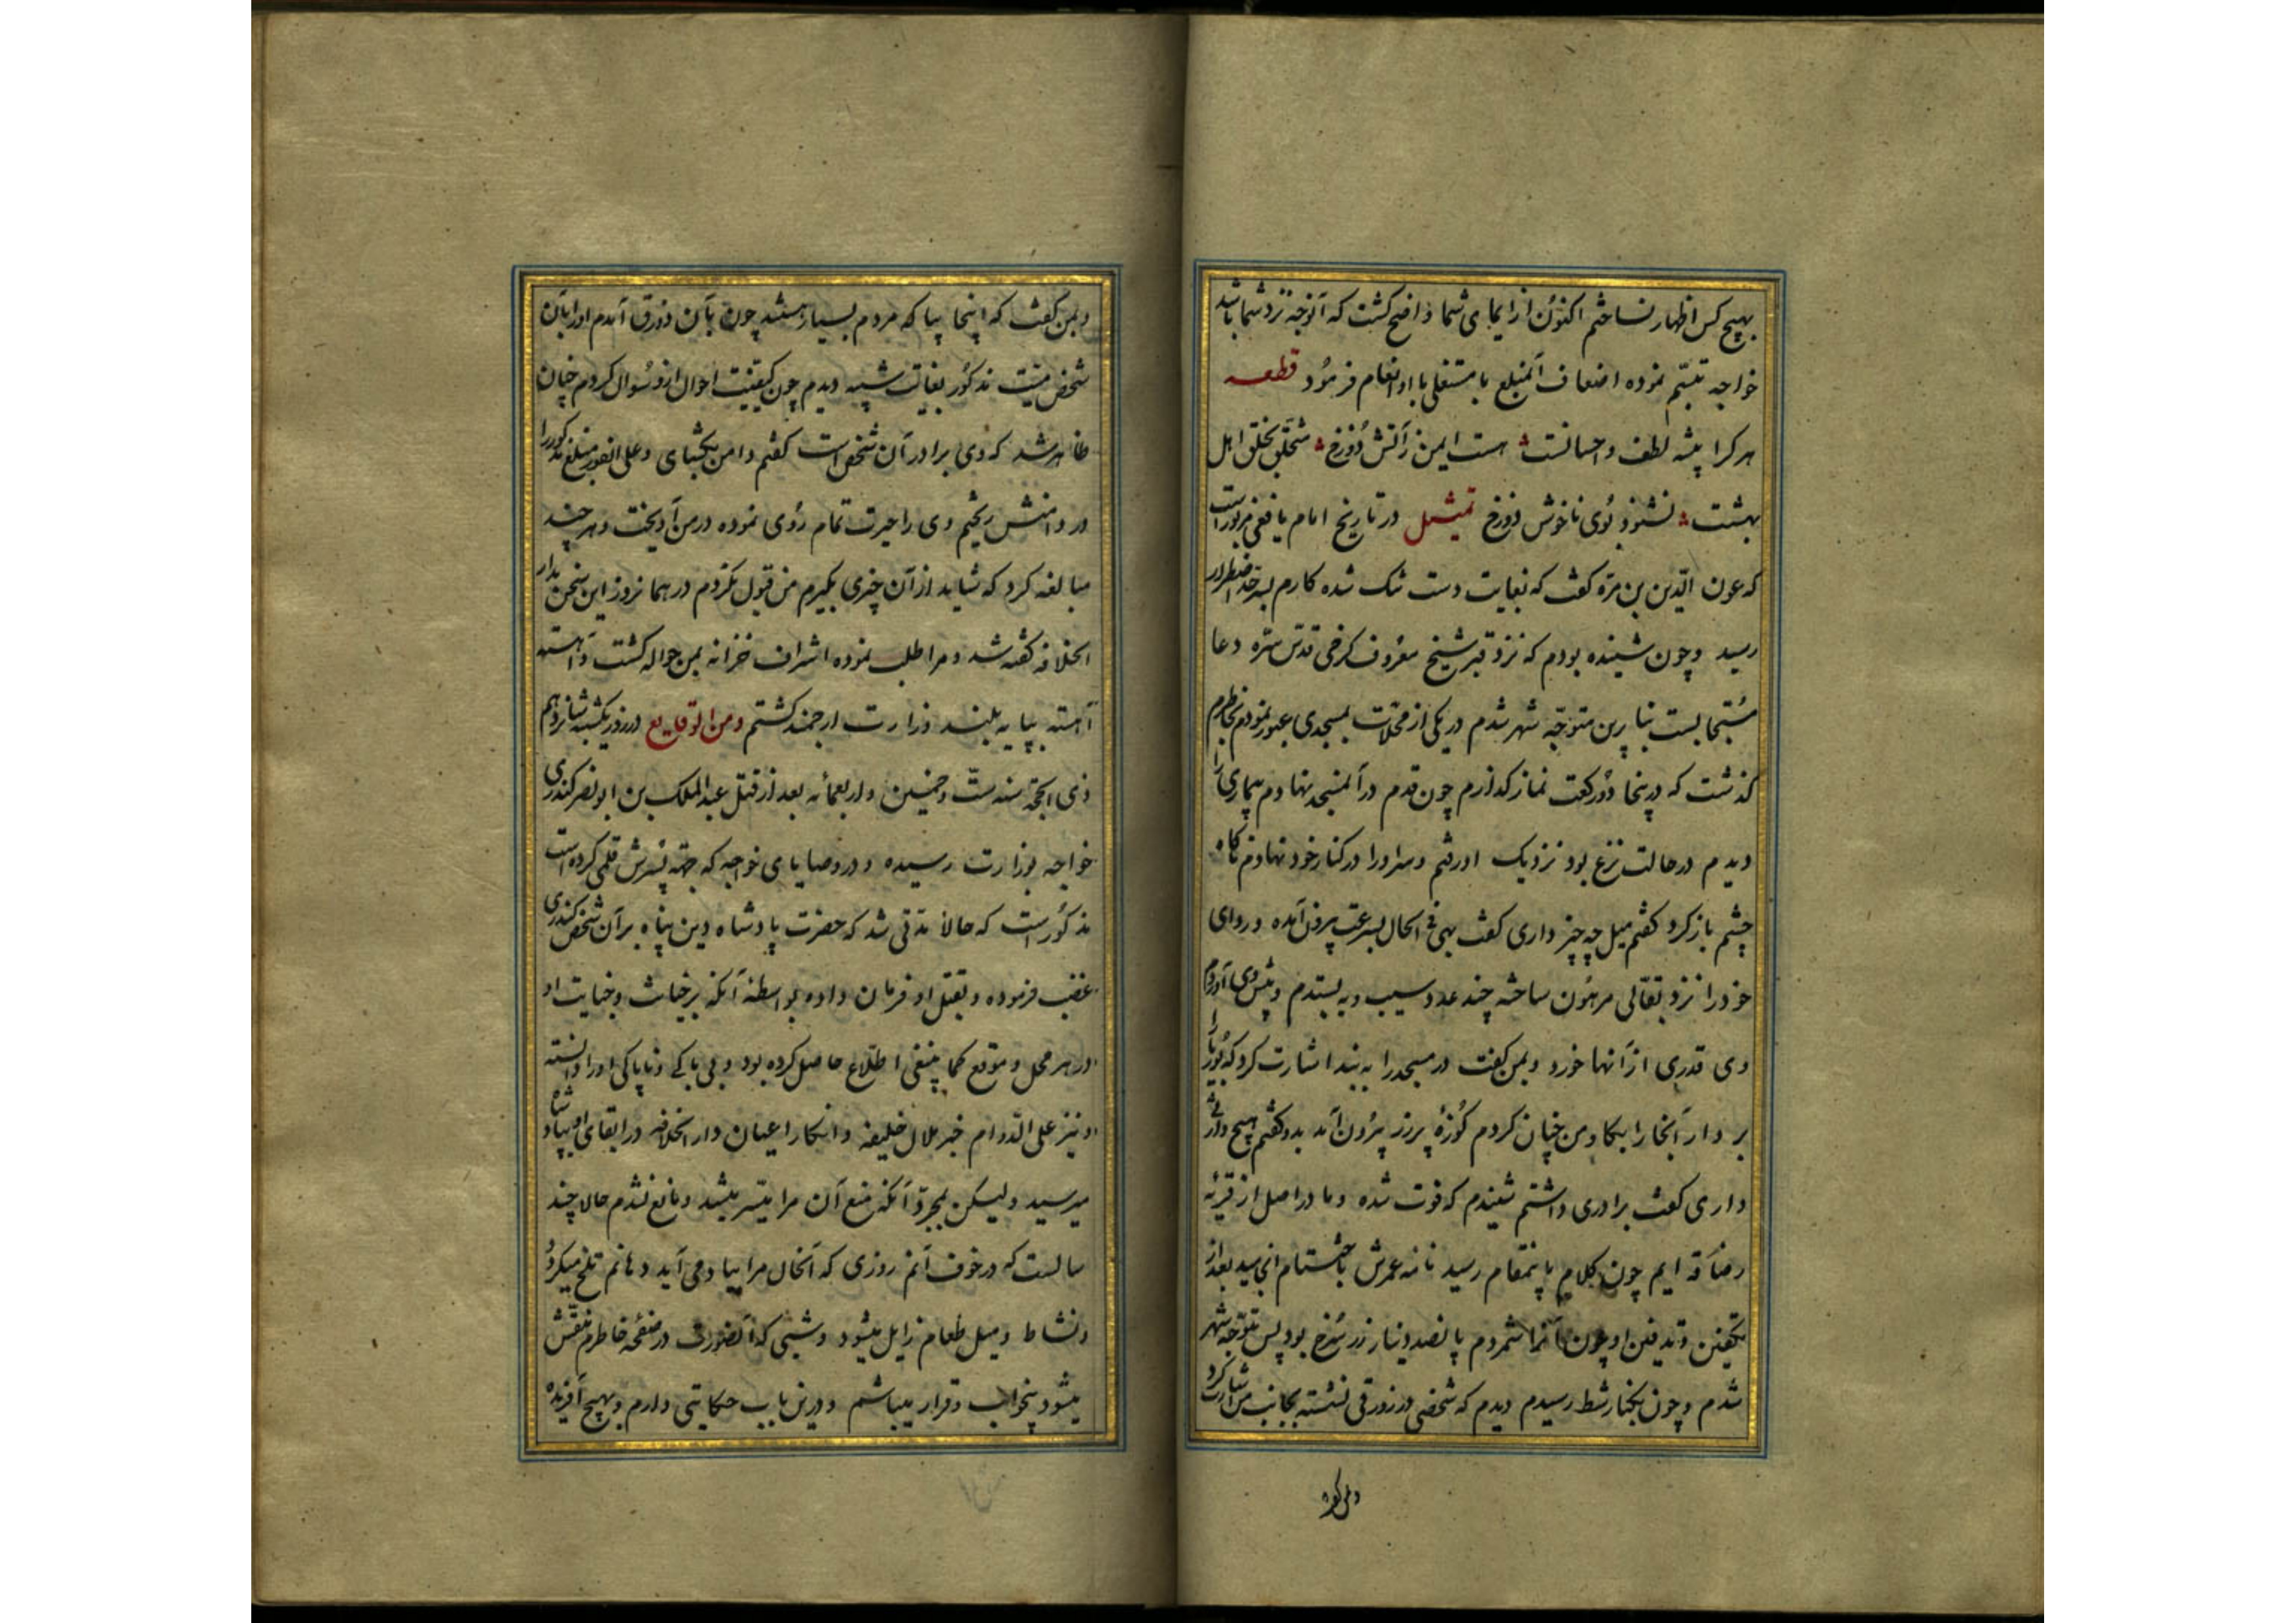 بهیچ کس اظهار نساختم اکنون از ایمای شما واضح کشت که آنوجه نزد شما باشد
خواجه تبسّم نموده اضعاف آنمبلغ با مستغلی با او انعام فرمود قطعه
هر کرا پیشه لطف و احسانست هست ایمن ز آتش دوزخ متخلّق بخلق اهل
بهشت نشنود بوی ناخوش دوزخ تمثیل در تاریخ امام یافعی مزبور است
که عون الدّین بن مرّه کفت که بغایت دست تنک شده کارم بسرحد اضطرار
رسید و چون شنیده بودم که نزد قبر شیخ معروف کرخی قدّس سرّه دعا
مستجابست بنابرین متوجّه شهر شدم در یکی از محلّات بمسجدی عبور نمودم بخاطرم
کذشت که درینجا دو رکعت نماز کذارم چون قدم در آنمسجد نهادم بیماری را
دیدم در حالت نزع بود نزدیک او رفتم و سر او را در کنار خود نهادم ناکاه
چشم باز کرد کفتم میل چه چیز داری کفت بهی فی الحال بسرعت بیرون آمده و ردای
خود را نزد بقّالی مرهون ساخته چند عدد سیب و به بستدم و پیش وی آوردم
وی قدری از آنها خورد و بمن کفت در مسجد را ببند اشارت کرد که بوریا را
بردار آنجا را بکاو من چنان کردم کوزهٔ پر زر بیرون آمد بدو کفتم هیچ وارثی
داری کفت برادری داشتم شنیدم که فوت شده و ما در اصل از قریهٔ
رصافه ایم چون کلام باینمقام رسید نامه عمرش باختتام انجامید بعد از
تکفین و تدفین او چون آنرا شمردم پانصد دینار زر سرخ بود پس متوجّه شهر
شدم و چون بکنار شط رسیدم دیدم که شخصی در زورقی نشسته بجانب من اشارت کرد
و بمن کفت
و بمن کفت که اینجا بیا که مردم بسیار هستند چون بآن زورق آمدم او را بآن
شخص میّت مذکور بغایت شبیه دیدم چون کیفیّت احوال ازو سؤال کردم چنان
ظاهر شد که وی برادر آن شخص است کفتم دامن بکشای و علی الفور مبلغ مذکور را
در دامنش ریختم وی را حیرت تمام روی نموده در من آویخت و هر چند
مبالغه کرد که شاید از آن چیزی بکیرم من قبول نکردم در همانروز این سخن بدار
الخلافه کفته شد و مرا طلب نموده اشراف خزانه بمن حواله کشت و آهسته
آهسته بپایه بلند وزارت ارجمند کشتم ومن الوقایع در روز یکشنبه شانزدهم
ذی الحجّه سنه ستّ و خمسین و اربعمائه بعد از قتل عبدالملک بن ابو نصر کندری
خواجه بوزارت رسیده و در وصایای خواجه که جهّة پسرش قلمی کرده است
مذکور است که حالا مدّتی شد که حضرت پادشاه دین پناه بر آن شخص کندری
غضب فرموده و بقتل او فرمان داده بواسطهٔ آنکه بر خباثت و خیانت او
در هر محل و موقع کما ینبغی اطّلاع حاصل کرده بود و بی باکی و ناپاکی او را دانسته
و نیز علی الدّوام خبر ملال خلیفه و انکار اعیان دار الخلافه در ابقای او بپادشاه
میرسید ولیکن بمجرّد آنکه منع آن مرا میسّر میشد و مانع نشدم حالا چند
سالست که در خوف آنم روزی که آنحال مرا بیاد می آید دهانم تلخ میکردد
و نشاط و میل طعام زایل میشود و شبی که آنصورت در صفحه خاطرم منقّش
میشود بیخواب و قرار میباشم و درین باب حکایتی دارم و بهیچ آفریده